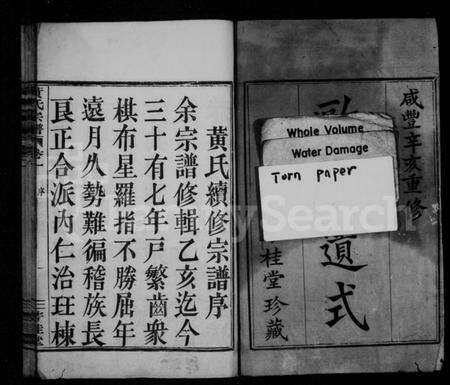 咸豐辛亥重修
道式
桂堂珍藏
Whole Volume
Water Damage
Torn paper
黃氏續修宗譜序
余宗譜修輯乙亥迄今
三十有七年戶繁齒衆
棋布星羅指不勝屈年
遠月久勢難徧稽族長
良正合派內仁治班棟
氏宗譜
序
Search